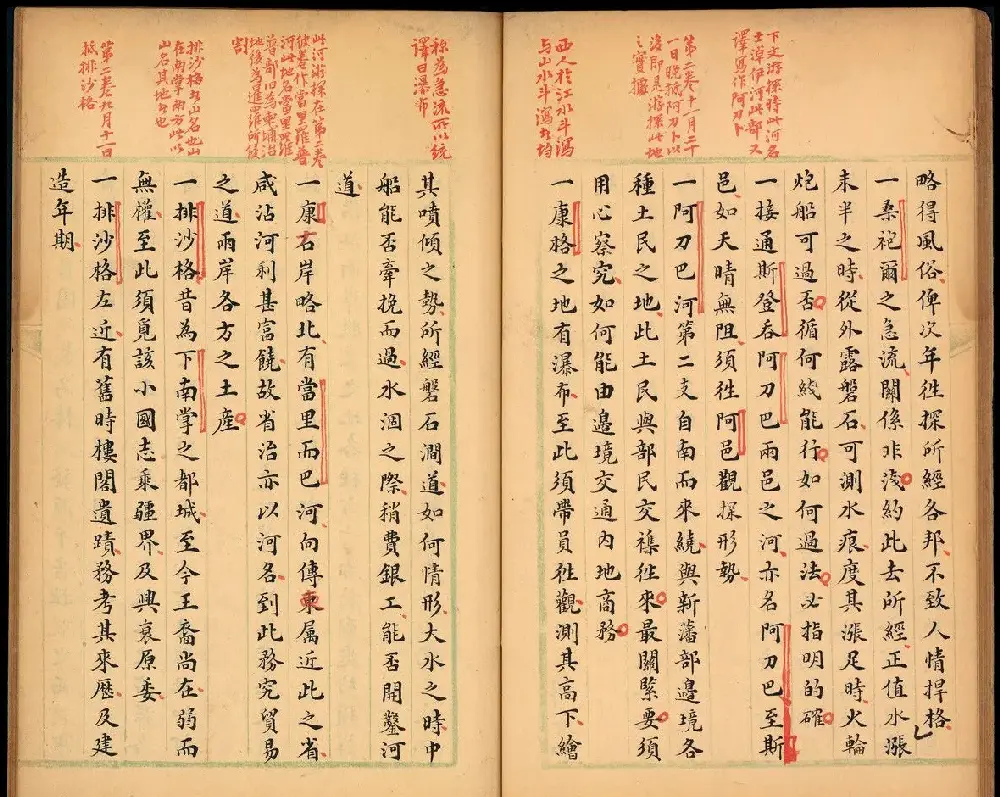 下文游探特此河名
士淖伊河此部又
譯寫作阿刀卜
第二卷十一月二十
一日晚抵阿刀卜以
後即是游探此地
之實據
西人於江水斗瀉
與山水斗瀉者均
略得風俗俾次年徃探所經各邦不致人情捍格
一桑袍爾之急流關係非淺約此去所經正值水漲
未半之時從外露磐石可測水痕度其漲足時火輪
炮船可過否循何綫能行如何過法必指明的確
一接通斯登吞阿刀巴兩邑之河亦名阿刀巴至斯
邑如天晴無阻須徃阿邑觀探形勢
一阿刀巴河第二支自南而來繞與新藩部邊境各
種土民之地此土民與部民交襍徃來最關緊要須
用心察究如何能由邊境交通內地商務
一康胳之地有瀑布至此須帶員徃觀測其高下繪
稱為急流所以統
譯曰瀑布
此河游探在第二卷
彼書作當里羅普
河此地名當里羅
普部旧為柬埔治
地後為暹羅所
割
排沙格者山名也山
在南掌南方以
山名其地者也
第二卷九月十一日
抵排沙格
其噴傾之勢所經磐石澗道如何情形大水之時中
船能否牽挽而過水涸之際稍費銀工能否開鑿河
道
一康右岸略北有當里而巴河向傳東属近此之省
咸沾河利甚富饒故省治亦以河名到此務究貿易
之道兩岸各方之土產
一排沙格昔為下南掌之都城至今王裔尚在弱而
無權至此須覓該小國志乘疆界及興衰原委
一排沙格左近有舊時樓閣遺蹟務考其來歷及建
造年期